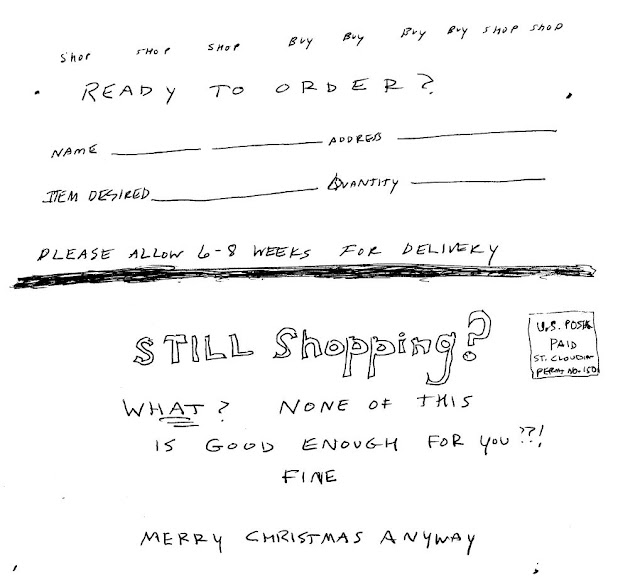 SHOP SHOP SHOP BUY BUY BUY BUY SHOP SHOP
READY TO ORDER?
NAME ADDRESS
ITEM DESIRED QUANTITY
PLEASE ALLOW 6-8 WEEKS FOR DELIVERY
STILL Shopping?
U.S. POST
PAID
ST. CLOUD
PERMIT NO. 150
WHAT? NONE OF THIS
IS GOOD ENOUGH FOR YOU??!
FINE
MERRY CHRISTMAS ANYWAY